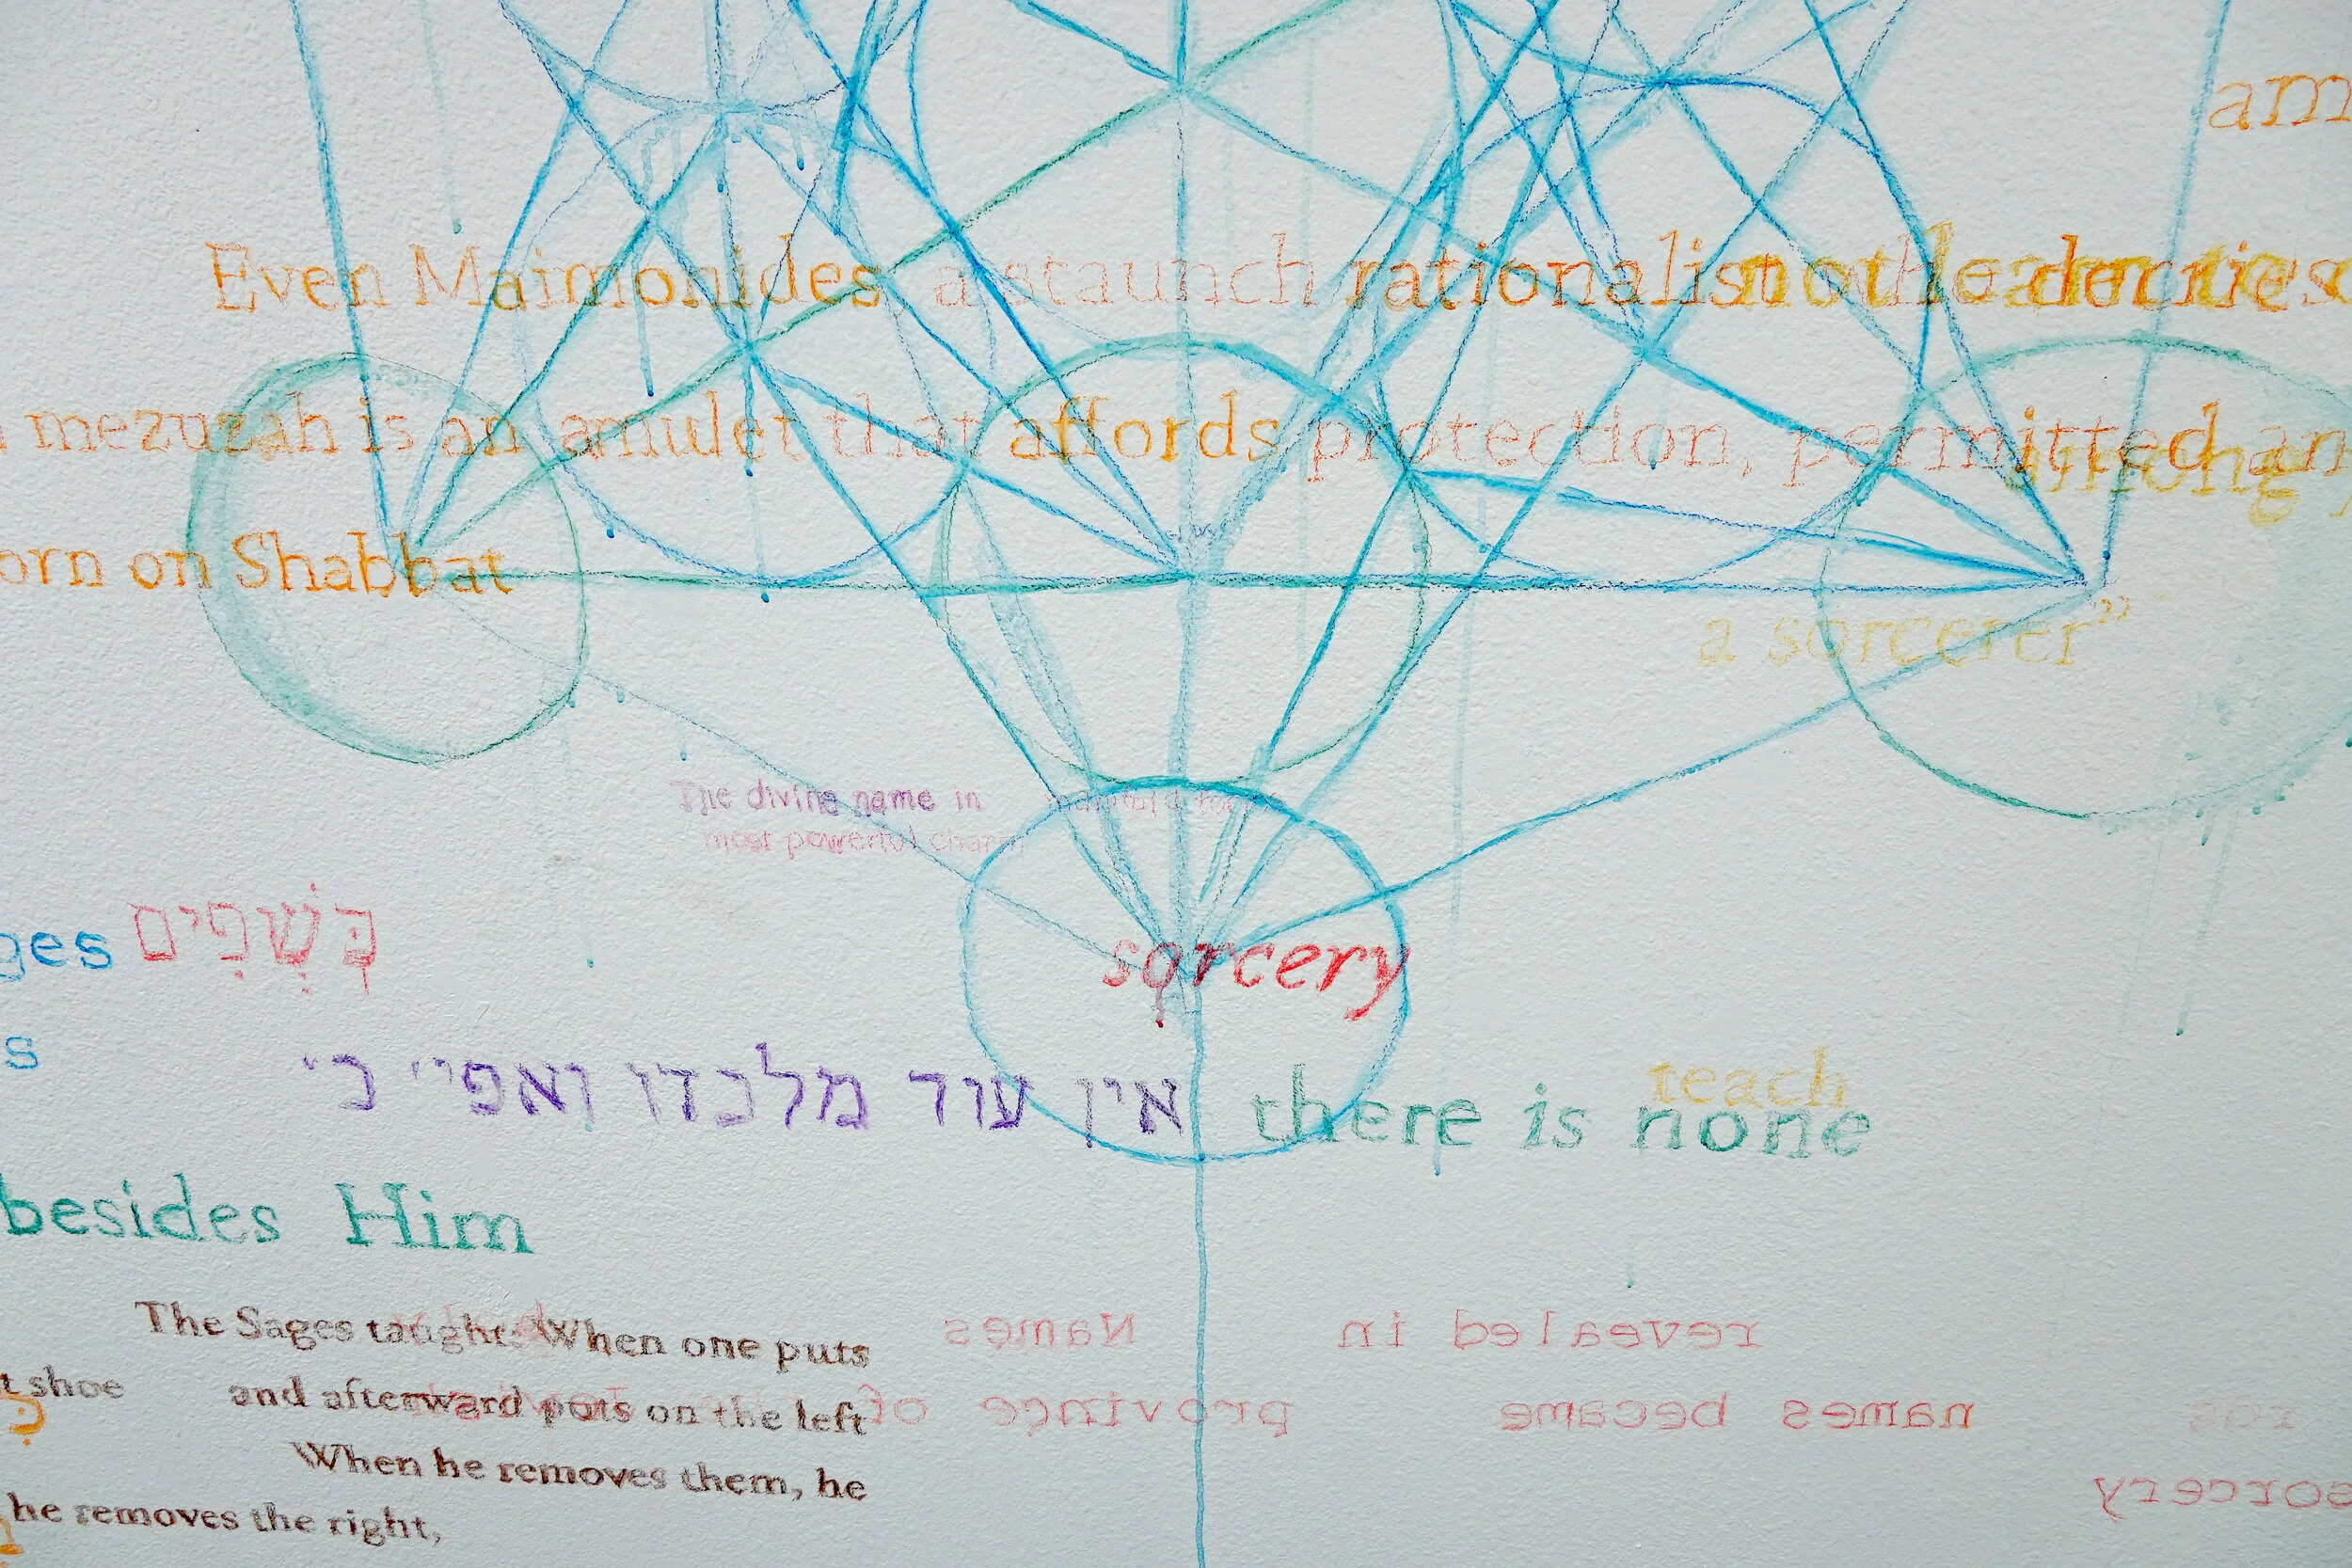 am
Even Maimonides, a staunch rationalist
mezuzah is an amulet that affords protection, permitted an
among
orn on Shabbat
a sorcerer”
The divine name in
most powerful
ges כְּשָׁפִים
sorcery
s
אין עוד מלבדו ואפי׳ כ׳
teach
there is none
besides Him
The Sages taught: When one puts
Names revealed in
t shoe and afterward puts on the left
of province became names
When he removes them, he
sorcery
he removes the right,